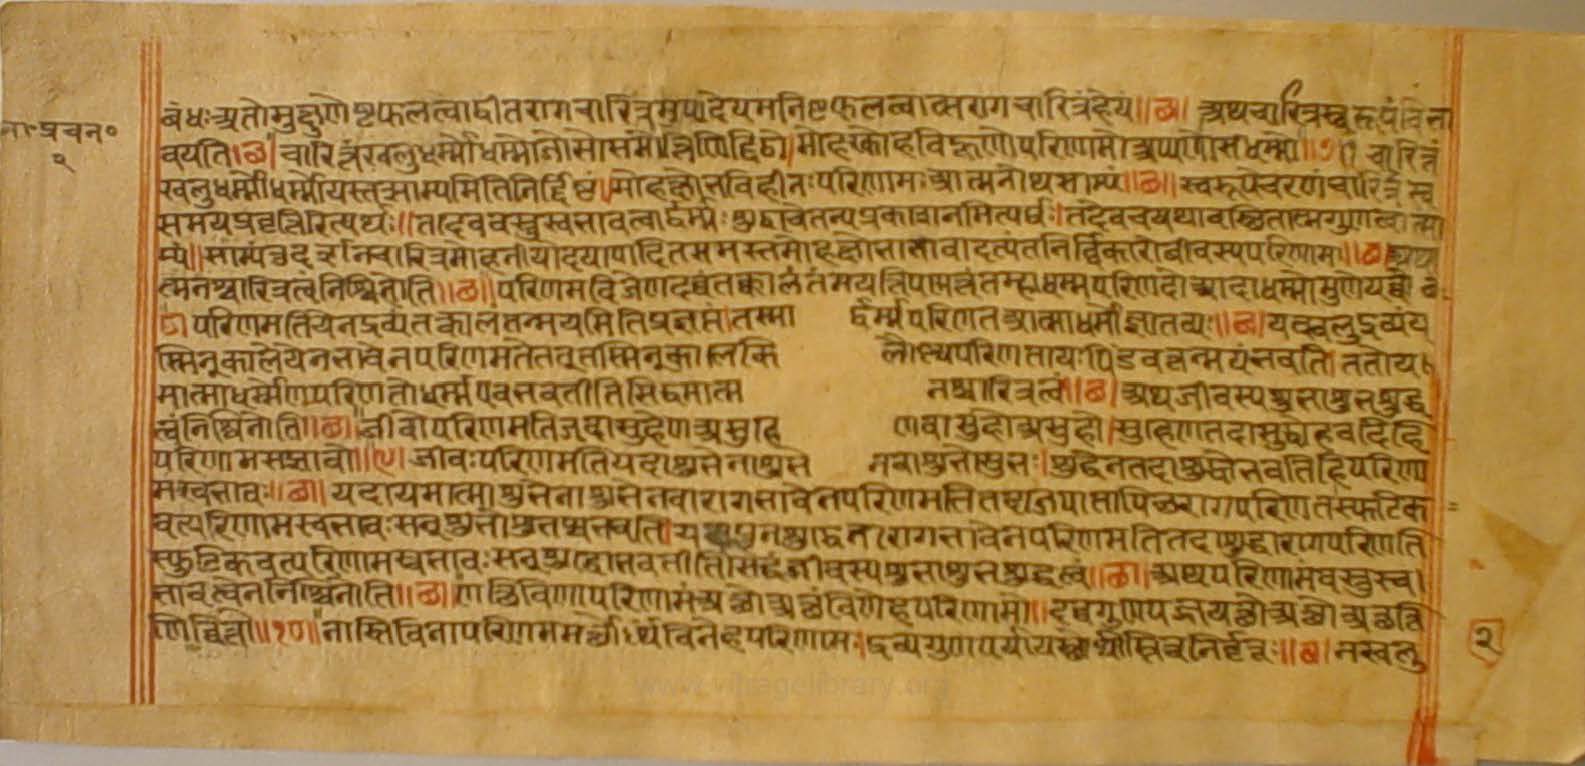 ना॰प्रवचन॰
२
बंधः अतो मुमुक्षुणेष्टफलत्वाद्वीतरागचारित्रमुपादेयमनिष्टफलत्वात्सरागचारित्रं हेयं ॥छ॥ अथ चारित्रस्वरूपं विभा
वयति ॥छ॥ चारित्तं खलु धम्मो धम्मो जो सो समो त्ति णिद्दिट्ठो। मोहक्खोहविहूणो परिणामो अप्पणो स धम्मो ॥७॥ चारित्रं
खलु धर्मो धर्मो यस्तत्साम्यमिति निर्दिष्टं। मोहक्षोभविहीनः परिणामः आत्मनो साम्यं ॥छ॥ स्वरूपे चरणं चारित्रं स्व
समयप्रवृत्तिरित्यर्थः॥ तदेव वस्तुस्वभावत्वाद्धर्मः शुद्धचैतन्यप्रकाशनमित्यर्थः। तदेव च यथावस्थितात्मगुणत्वात्सा
म्यं॥ साम्यं दर्शनचारित्रमोहनीयोदयापादितसमस्तमोहक्षोभाभावादत्यंतनिर्विकारो जीवस्य परिणामः ॥छ॥ अथा
त्मनश्चारित्रत्वं निश्चिनोति ॥छ॥ परिणमदि जेण दव्वं तक्कालं तम्मय त्ति पण्णत्तं तम्हा धम्मपरिणदो आदा धम्मो मुणेयव्वो
परिणमति येन द्रव्यं तत्कालं तन्मयमिति प्रज्ञप्तं। तस्मा द्धर्मपरिणत आत्मा धर्मो ज्ञातव्यः ॥छ॥ यत्खलु द्रव्यं य
स्मिन्काले येन भावेन परिणमते तत् तस्मिन् काले किलौष्ण्यपरिणतायःपिंडवत्तन्मयं भवति। ततोय
मात्मा धर्मेण परिणतो धर्म एव भवतीति सिद्धमात्म नश्चारित्रत्वं ॥छ॥ अथ जीवस्य शुभाशुभशुद्ध
त्वं निश्चिनोति ॥छ॥ जीवो परिणमति जदा सुहेण असुहेण वा सुहो असुहो। सुद्धेण तदा सुद्धो हवदि हि
परिणामसब्भावो ॥९॥ जीवः परिणमति यदा शुभेनाशुभे न वा शुभोशुभः। शुद्धेन तदा शुद्धो भवति हि परिणा
मस्वभावः ॥छ॥ यदायमात्मा शुभेनाशुभेन वा रागभावेन परिणमति तदा जपातापिच्छरागपरिणतस्फटिक
वत्परिणामस्वभावः सन् शुभोशुभश्च भवति। यदा पुनः शुद्धेन रागभावेन परिणमति तदा शुद्धारागपरिणति
स्फटिकवत्परिणामस्वभावः सन् शुद्धो भवतीति सिद्धं जीवस्य शुभाशुभशुद्धत्वं ॥छ॥ अथ परिणामं वस्तुस्व
भावत्वेन निश्चिनोति ॥छ॥ णत्थि विणा परिणामं अत्थो अत्थं विणेह परिणामो॥ दव्वगुणपज्जयत्थो अत्थो अत्थत्त
णिव्वत्तो ॥१०॥ नास्ति विना परिणाममर्थोर्थं विनेह परिणामः। द्रव्यगुणपर्यायस्थोर्थोस्तित्वनिर्वृत्तः ॥छ॥ न खलु
२
www.vitragelibrary.org